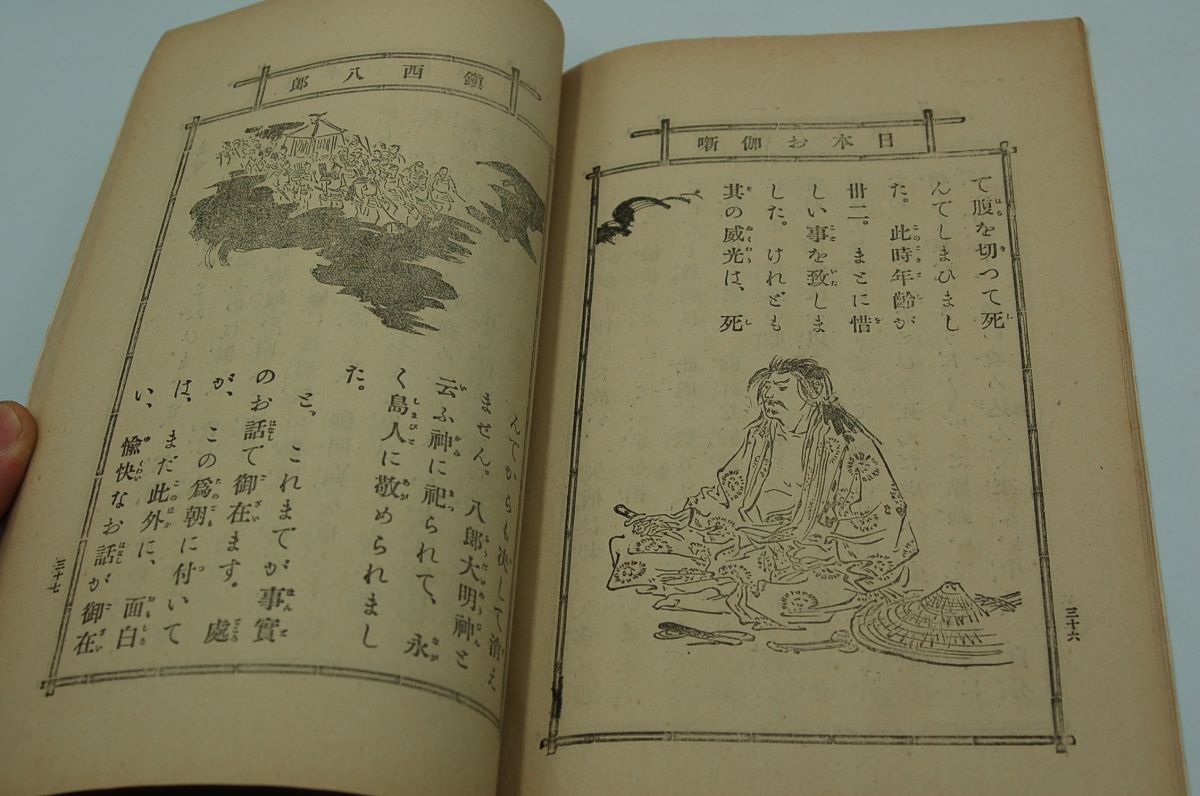 日本お伽噺
て腹を切つて死
んでしまひまし
た。此時年齡が
卅二。まとに惜
しい事を致しま
した。けれども
其の威光は、死
三十六
鎭西八郎
んでからも決して消え
ません。八郎大明神と
云ふ神に祀られて、永
く島人に敬められまし
た。
と、これまでが事實
のお話で御在ます。處
が、この爲朝に付いて
は、まだ此外に、面白
い、愉快なお話が御在
三十七